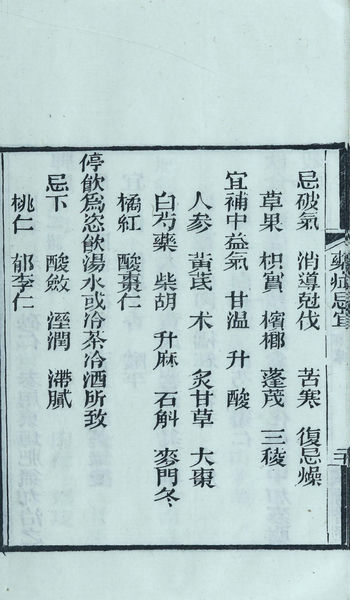 藥症忌宜
二十
忌破氣 消導尅伐 苦寒 復忌燥
草果 枳實 檳榔 蓬茂 三稜
宜補中益氣 甘温 升 酸
人参 黃茋 术 炙甘草 大棗
白芍藥 柴胡 升麻 石斛 麥門冬
橘紅 酸棗仁
停飲爲恣飲湯水或冷茶冷酒所致
忌下 酸斂 溼潤 滯膩
桃仁 郁李仁